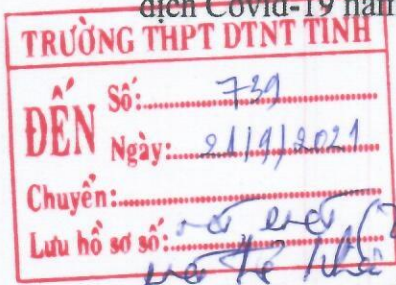 dịch Covid-19 năm
TRƯỜNG THPT DTNT TỈNH
ĐẾN
Số: 739
Ngày: 21/9/2021
Chuyển:
Lưu hồ sơ số: